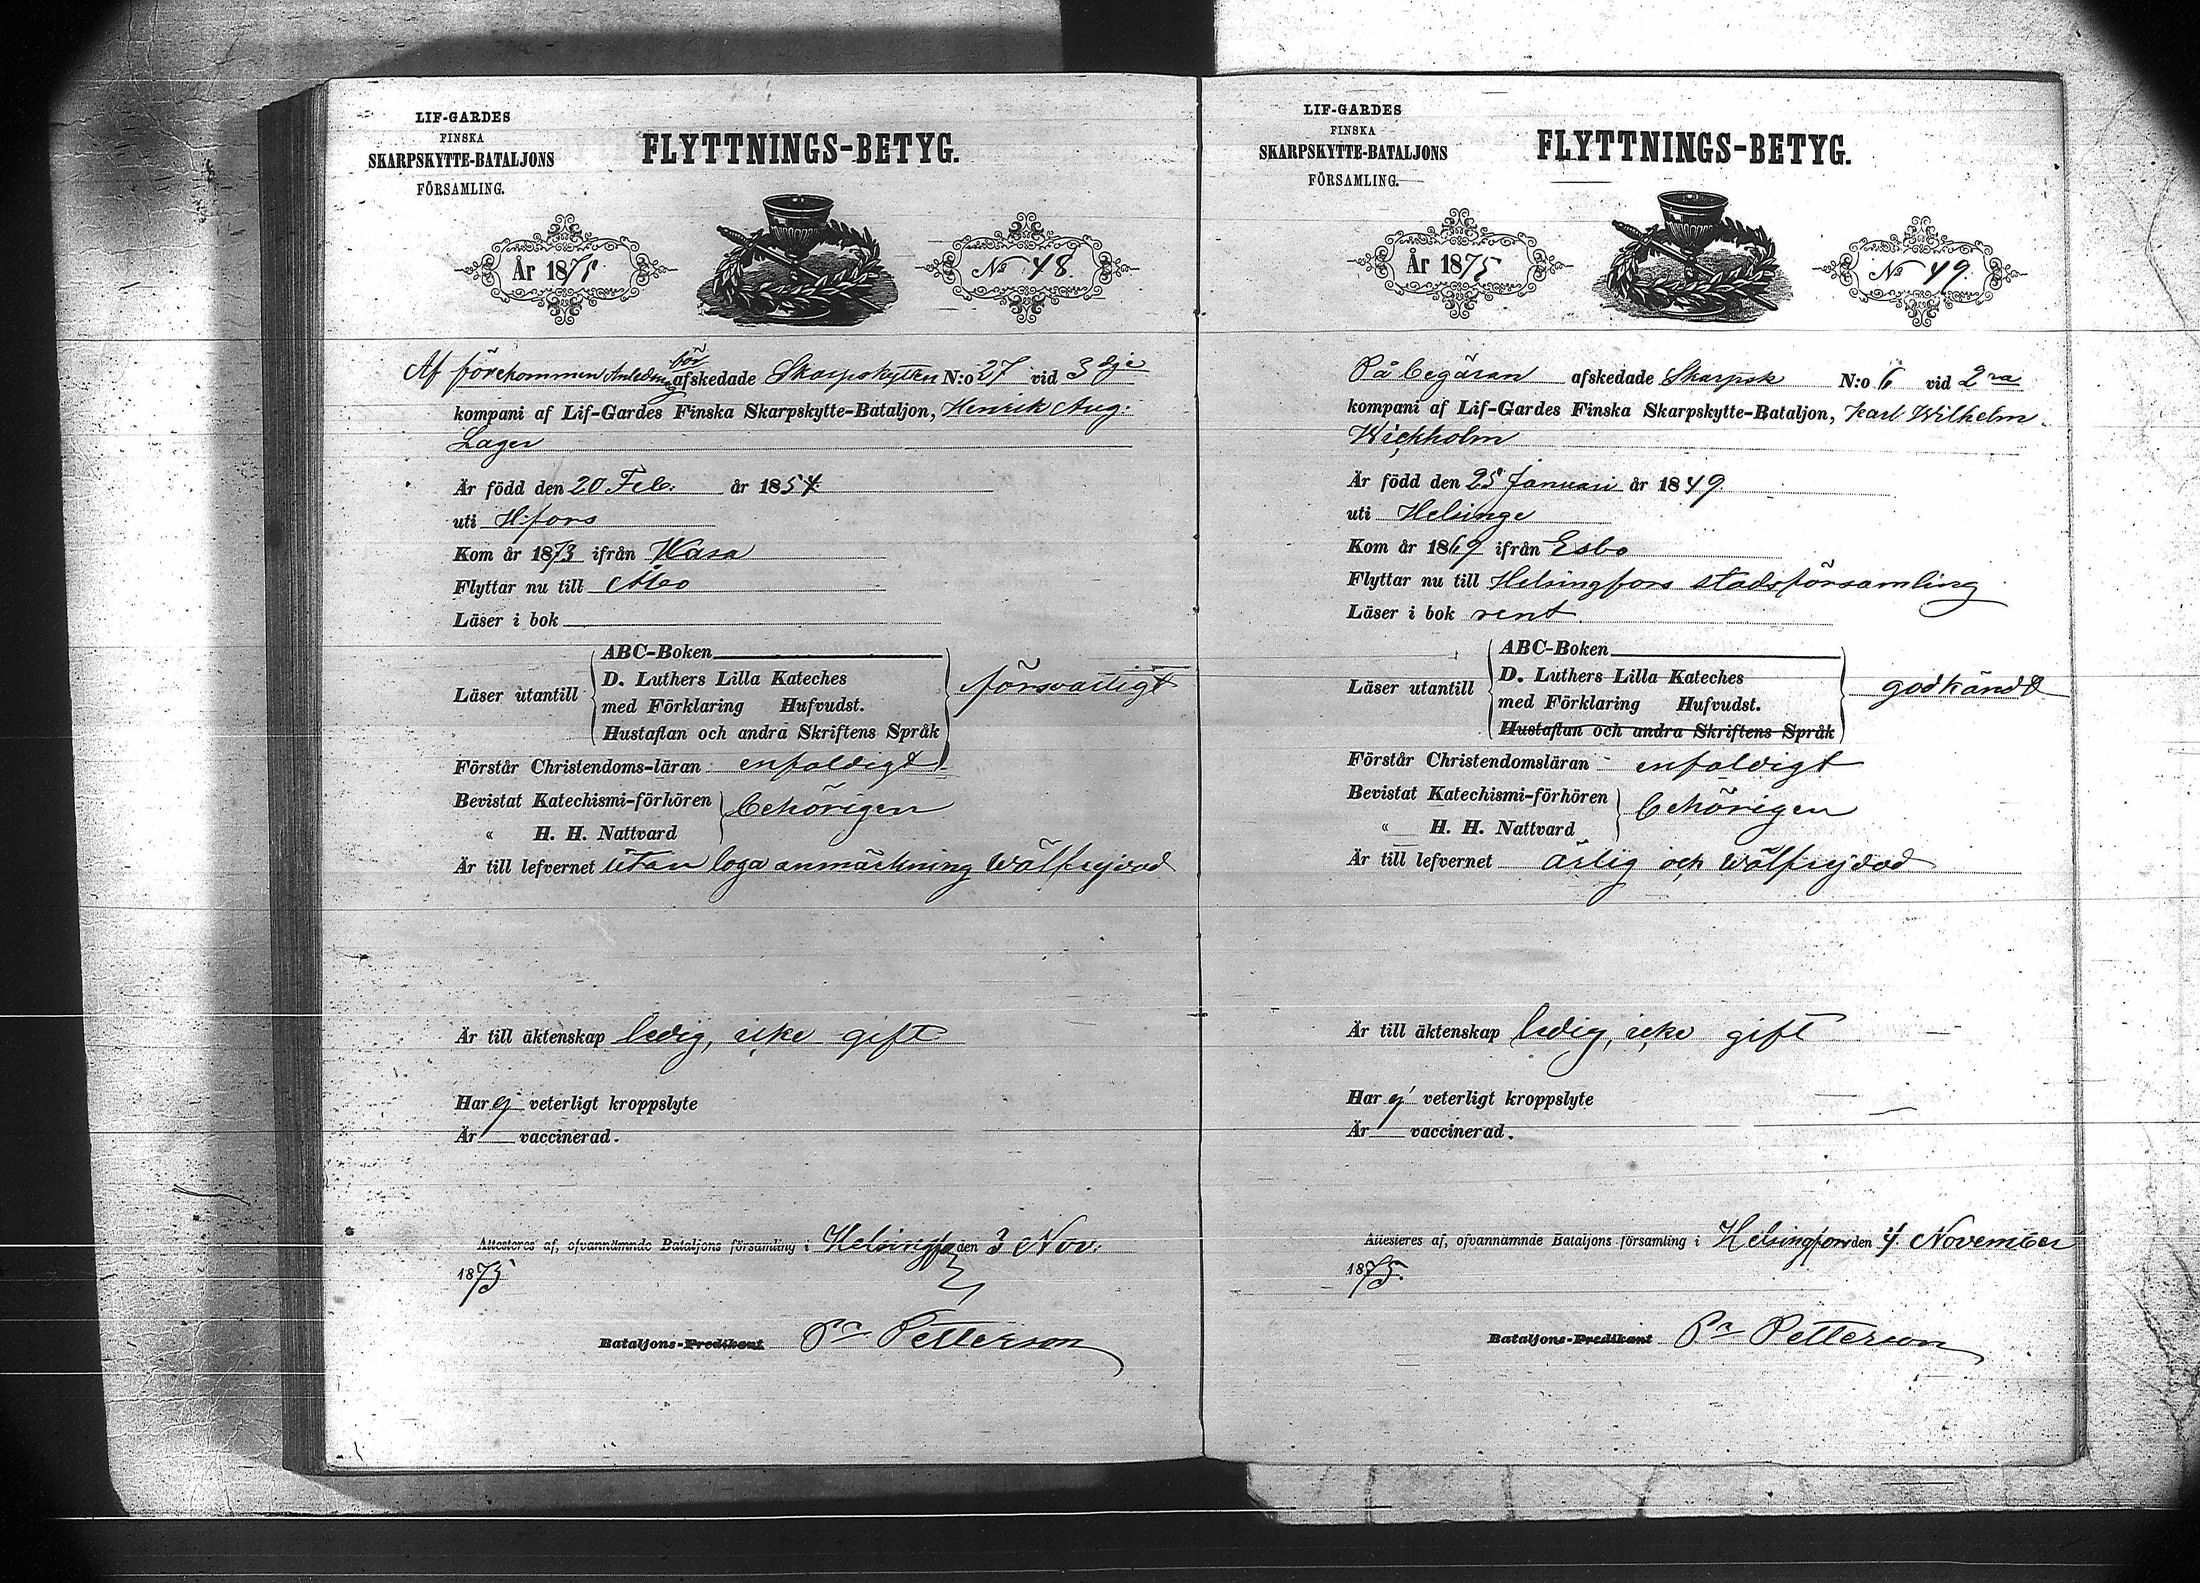 LIF-GARDES
FINSKA
SKARPSKYTTE-BATALJONS
FÖRSAMLING.
FLYTTNINGS-BETYG.
År 1875
No 48.
Af förekommen Anledning för afskedade Skarpskytten N:o 27 vid 3dje
kompani af Lif-Gardes Finska Skarpskytte-Bataljon, Henrik Aug.
Lager
Är född den 20 Feb. år 1854.
uti H:fors
Kom år 1873 ifrån Wasa
Flyttar nu till Åbo
Läser i bok
ABC-Boken
Läser utantill D. Luthers Lilla Kateches
med Förklaring Hufvudst.
Hustaflan och andra Skriftens Språk
försvarligt
Förstår Christendoms-läran enfaldigt
Bevistat Katechismi-förhören behörigen
« H. H. Nattvard
Är till lefvernet utan laga anmärkning wälfrejdad
Är till äktenskap ledig, icke gift
Har ej veterligt kroppslyte
Är vaccinerad.
Attesteras af, ofvannämnde Bataljons församling i Helsingfors den 3 Nov.
1875
Bataljons-Predikant Petterson
LIF-GARDES
FINSKA
SKARPSKYTTE-BATALJONS
FÖRSAMLING.
FLYTTNINGS-BETYG.
År 1875
No 49.
På begäran afskedade Skarpsk N:o 6 vid 2ra
kompani af Lif-Gardes Finska Skarpskytte-Bataljon, Karl Wilhelm
Wickholm
Är född den 25 Januari år 1849.
uti Helsinge
Kom år 1869 ifrån Esbo
Flyttar nu till Helsingfors stadsförsamling
Läser i bok rent.
ABC-Boken
Läser utantill D. Luthers Lilla Kateches
med Förklaring Hufvudst.
Hustaflan och andra Skriftens Språk
godkändt
Förstår Christendomsläran enfaldigt
Bevistat Katechismi-förhören behörigen
« H. H. Nattvard
Är till lefvernet ärlig och wälfrejdad
Är till äktenskap ledig, icke gift
Har ej veterligt kroppslyte
Är vaccinerad.
Attesteras af, ofvannämnde Bataljons församling i Helsingfors den 4 November
1875.
Bataljons-Predikant Petterson